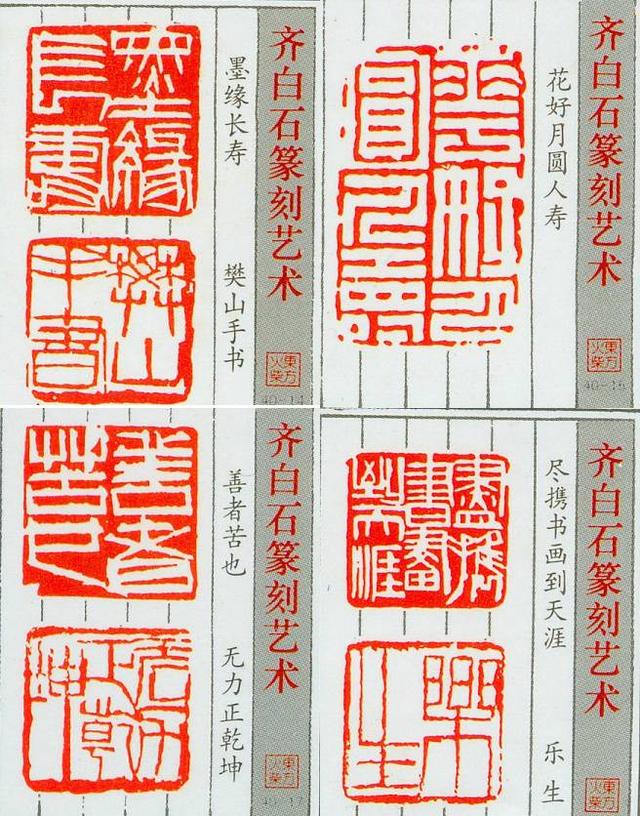 齐白石篆刻艺术
墨缘长寿
樊山手书
墨緣
長壽
樊山
手書
東方
火柴
40-14
齐白石篆刻艺术
花好月圆人寿
東方
火柴
齐白石篆刻艺术
善者苦也
无力正乾坤
善者
苦也
東方
火柴
40-17
齐白石篆刻艺术
尽携书画到天涯
乐生
盡攜
書畫
到天涯
東方
火柴